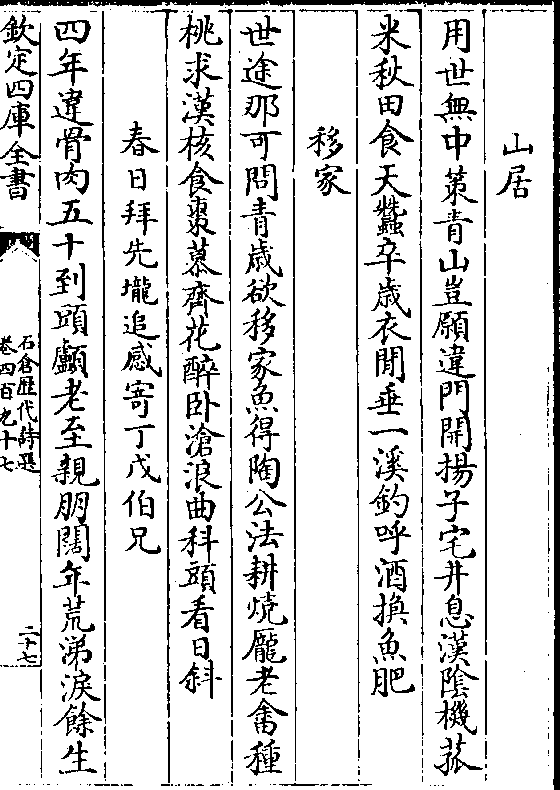 山居
用世無中策青山豈願違門開揚子宅井息漢隂機菰
米秋田食天蠶卒歲衣閒垂一溪釣呼酒換魚肥
移家
世途那可問青歲欲移家魚得陶公法耕燒龎老畬種
桃求漢核食棗慕齊花醉卧滄浪曲科頭看日斜
春日拜先壠追感寄丁戊伯兄
四年違骨肉五十到頭顱老至親朋闊年荒涕淚餘生
欽定四庫全書
石倉歴代詩選
卷四百九十七
二十七